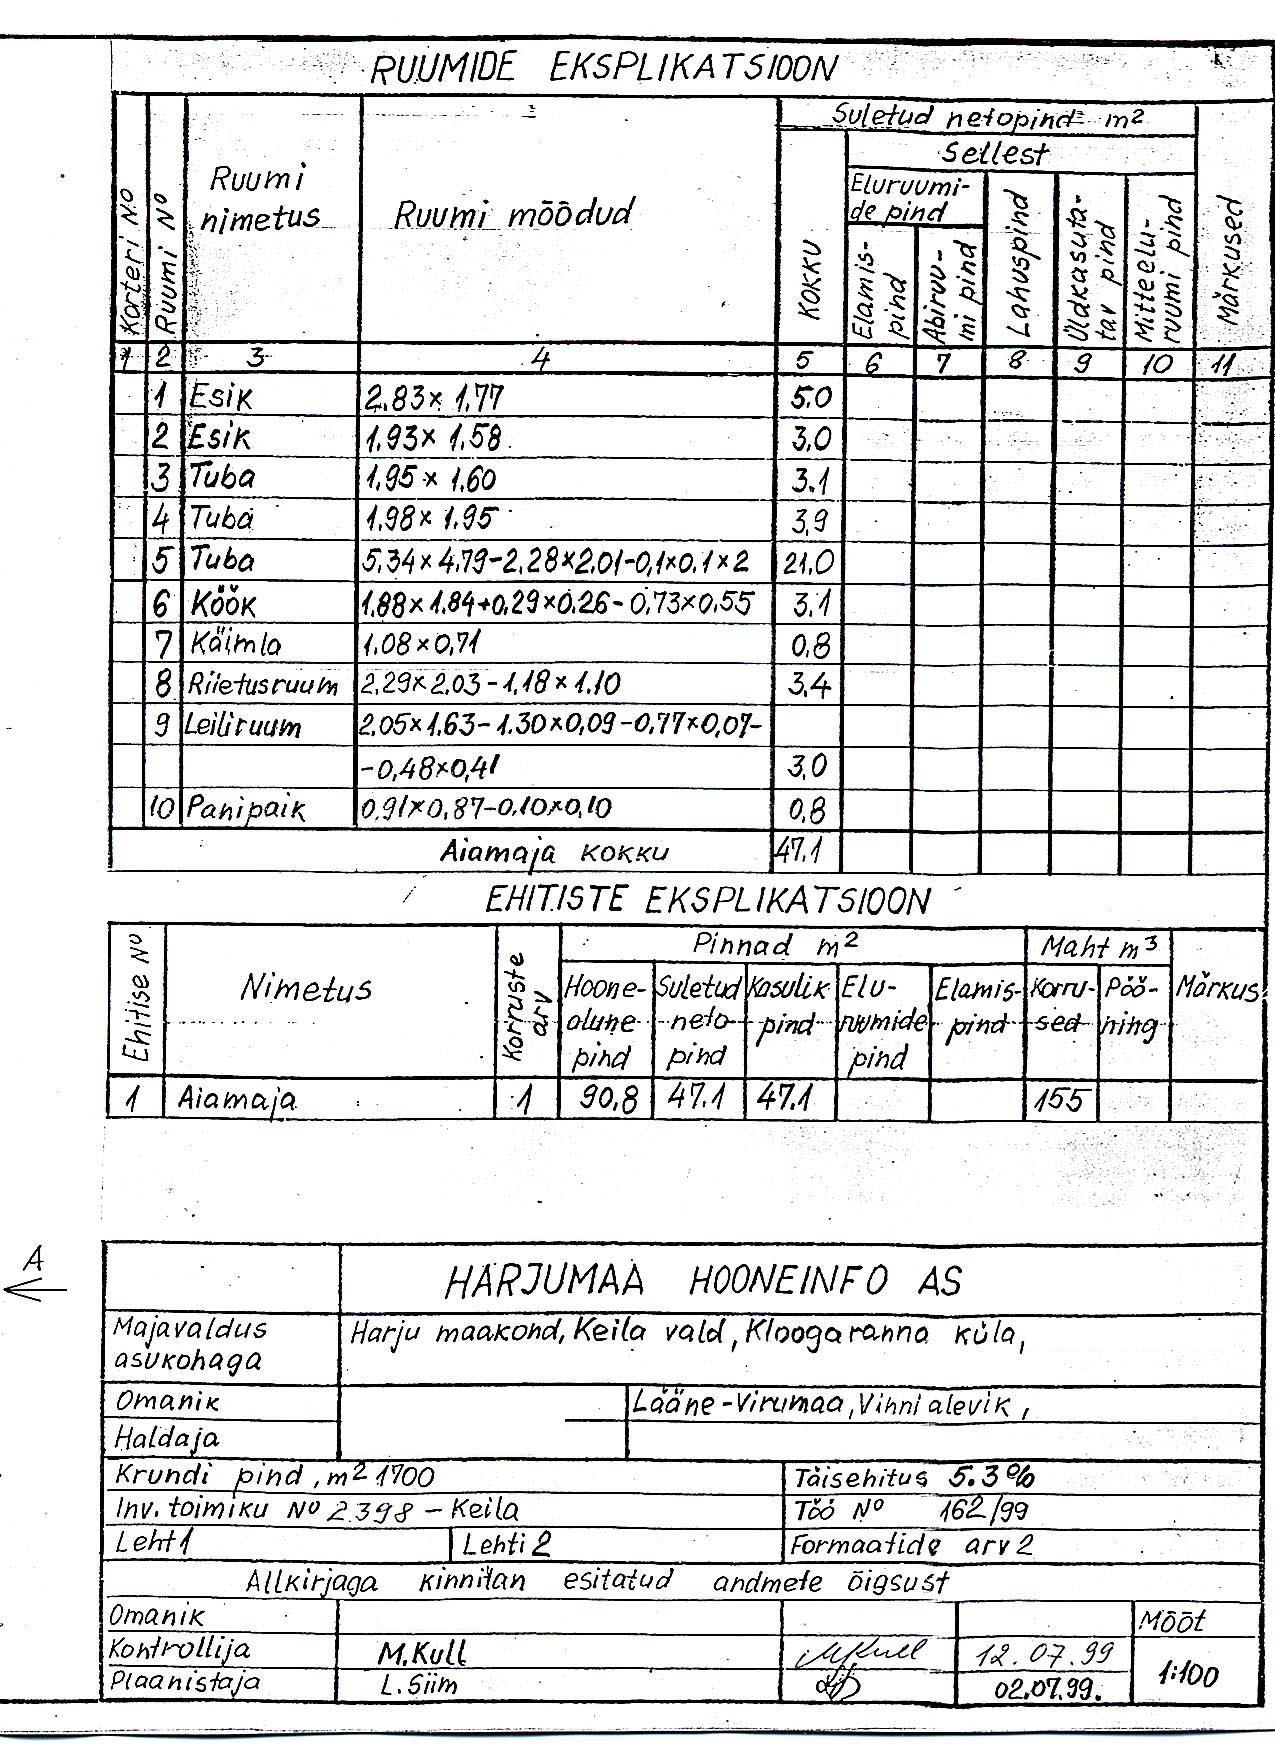 RUUMIDE EKSPLIKATSIOON
Korteri No
Ruumi No
Ruumi nimetus
Ruumi mõõdud
Suletud netopind m²
Kokku
Sellest
Eluruumi-
de pind
Elamis-
pind
Abiruu-
mi pind
Lahuspind
Üldkasuta-
tav pind
Mitteelu-
ruumi pind
Märkused
1 2 3 4 5 6 7 8 9 10 11
1 Esik 2,83 x 1,77 5.0
2 Esik 1,93 x 1,58 3,0
3 Tuba 1,95 x 1,60 3.1
4 Tuba 1,98 x 1,95 3,9
5 Tuba 5,34 x 4,79-2,28x2,01-0,1x0,1x2 21.0
6 Köök 1,88x1,84+0,29x0,26-0,73x0,55 3,1
7 Käimla 1,08x0,71 0,8
8 Riietusruum 2,29x2,03-1,18x1.10 3,4
9 Leiliruum 2,05x1,63-1.30x0,09-0,77x0,07-
-0,48x0,41 3,0
10 Panipaik 0,91x0,87-0,10x0,10 0,8
Aiamaja kokku 47.1
EHITISTE EKSPLIKATSIOON
Ehitise No
Nimetus
Korruste
arv
Pinnad m²
Hoone-
alune
pind
Suletud
neto
pind
Kasulik
pind
Elu-
ruumide
pind
Elamis-
pind
Maht m³
Korru-
sed
Pöö-
ning
Märkus
1 Aiamaja 1 90,8 47.1 47.1 155
A
HARJUMAA HOONEINFO AS
Majavaldus
asukohaga
Harju maakond, Keila vald, Kloogaranna küla,
Omanik
Lääne-Virumaa, Vinni alevik,
Haldaja
Krundi pind, m² 1700 Täisehitus 5.3%
Inv. toimiku No 2398 - Keila Töö No 162/99
Leht 1 Lehti 2 Formaatide arv 2
Allkirjaga kinnitan esitatud andmete õigsust
Omanik Mõõt
Kontrollija M.Kull MKull 12.07.99
Plaanistaja L.Siim 02.07.99. 1:100